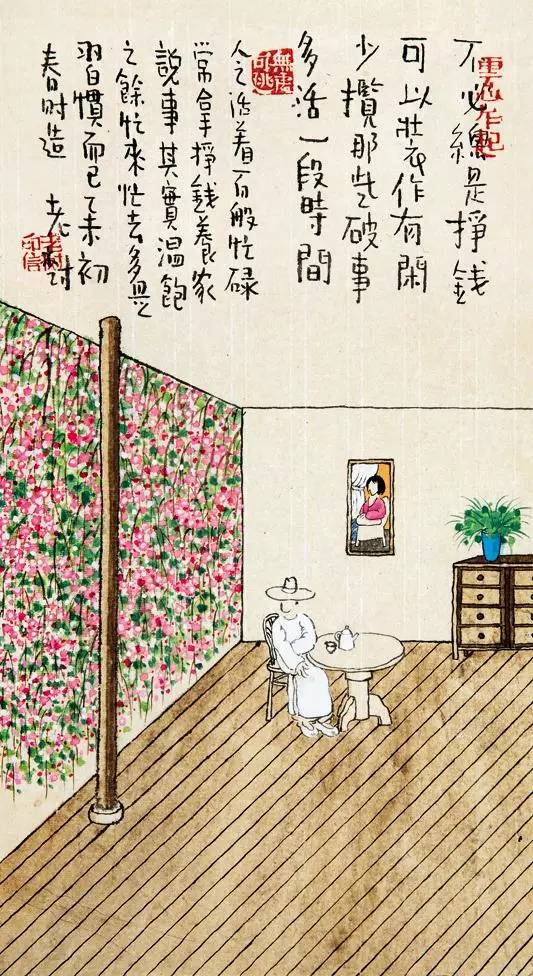 不必總是掙錢
可以裝作有閑
少攬那些破事
多活一段時間
無處可逃
人之活着百般忙碌
常拿掙錢養家
說事其實溫飽
之餘忙來忙去多是
習慣而已乙未初
春时造 老树
老樹印信